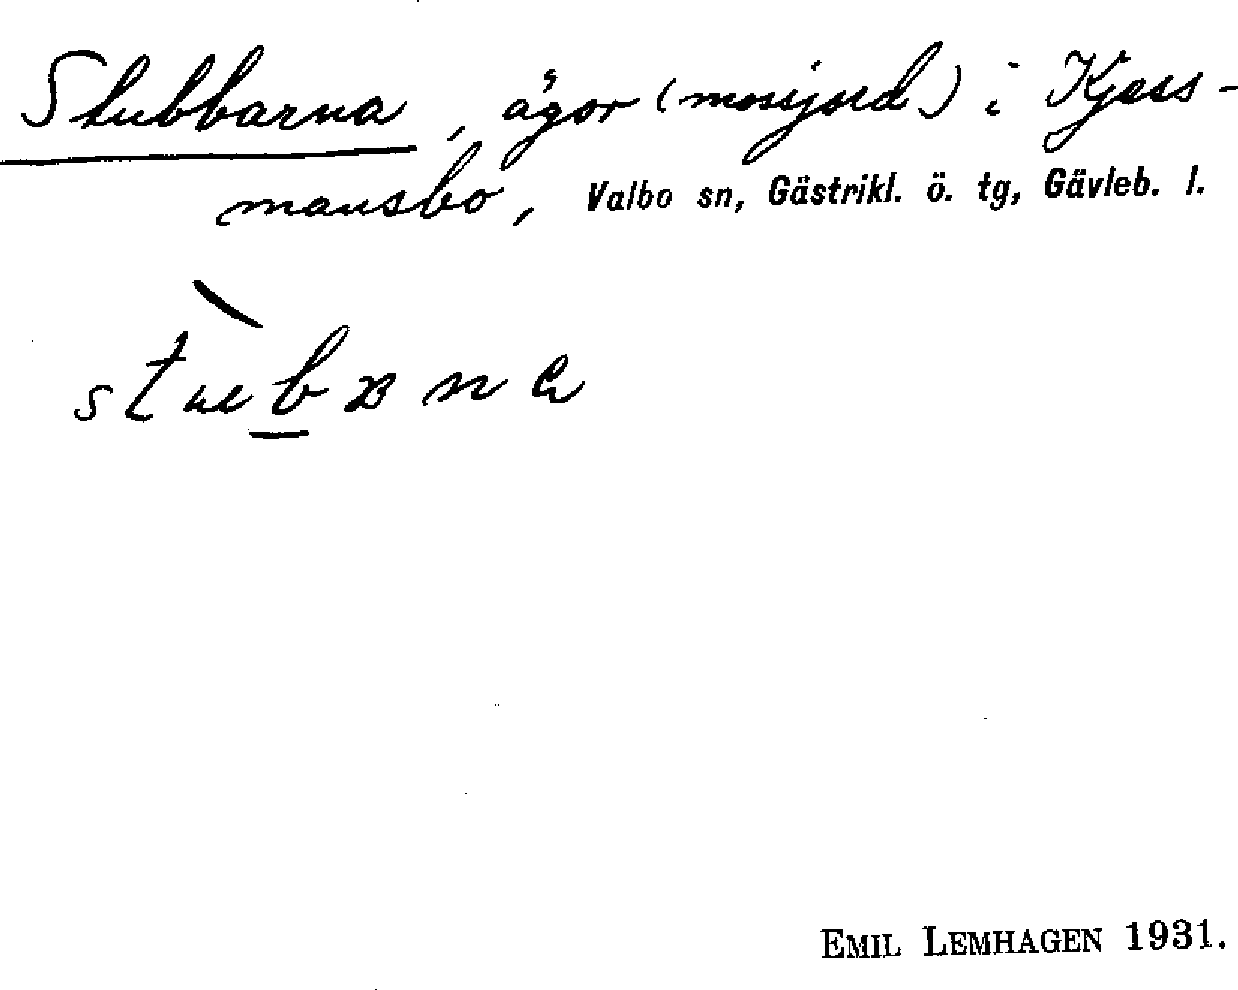 Stubbarna, ägor (mossjord) i Kjess-
mansbo, Valbo sn, Gästrikl. ö. tg, Gävleb. l.
EMIL LEMHAGEN 1931.